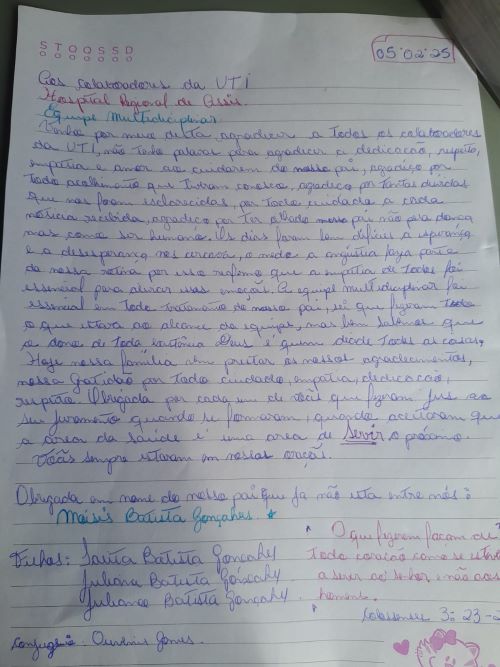 S T Q Q S S D
05:02:25
Aos colaboradores da UTI
Hospital Regional de Assis.
Equipe Multidiciplinar.
Venho por meio desta, agradecer a todos os colaboradores
da UTI, não tenho palavras para agradecer a dedicação, respeito,
empatia e amor ao cuidarem do nosso pai, agradeço por
todo acolhimento que tiveram conosco, agradeço por tantas dúvidas
que nos foram esclarecidas, por todo cuidado a cada
notícia recebida, agradeço por ter olhado nosso pai não pela doença
mas como ser humano. Os dias foram bem difíceis a esperança
e a desesperança nos corações, o medo a angústia fazia parte
da nossa rotina por isso reafirmo que a empatia de todos foi
essencial para aliviar essas emoções. A equipe multidiciplinar foi
essencial em todo tratamento do nosso pai, sei que fizeram tudo
o que estava ao alcance da equipe, mas bem sabemos que
o dono de toda Deus é quem decide todas as coisas.
Hoje nossa família vem prestar os nossos agradecimentos,
nossa Gratidão por todo cuidado, empatia, dedicação,
respeito. Obrigada por cada um de vocês que fizeram jus ao
seu juramento quando se formaram, quando aceitaram que
a área da saúde é uma area de Servir o próximo.
Vocês sempre estaram em nossas orações.
Obrigada em nome do nosso pai que ja não esta entre nós:
Moisés Batista Gonçalves.
Filhos: Batista Gonçalves
Juliana Batista Gonçalves.
Juliano Batista Gonçalves.
Conjugê: Gomes.
O que fizerem façam de
todo coração como se estive
a servir ao senhor não aos
homens.
Colossenses 3:23-2